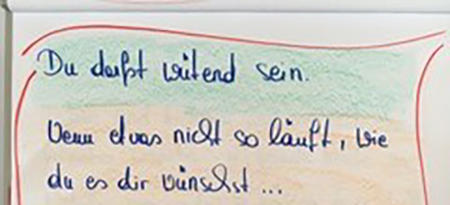 Du darfst wütend sein.
Wenn etwas nicht so läuft, wie
du es dir wünschst ...